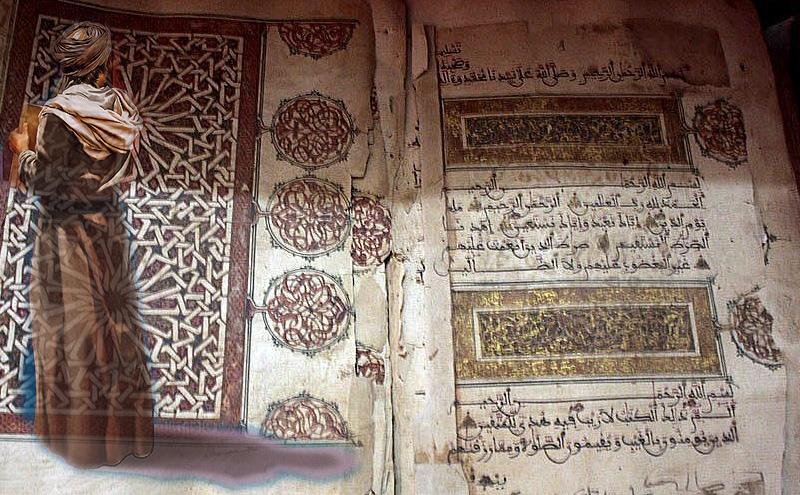 تسليما
وصحبه
بسم الله الرحمن الرحيم وصلى الله على سيدنا محمد وءاله
بسم الله الرحمن الرحيم
الحمد لله رب العلمين الرحمن الرحيم ملك
يوم الدين اياك نعبد واياك نستعين اهدنا
الصرط المستقيم صرط الذين انعمت عليهم
غير المغضوب عليهم ولا الضالين
بسم الله الرحمن الرحيم
الم ذلك الكتب لا ريب فيه هدى للمتقين
الذين يومنون بالغيب ويقيمون الصلوة ومما رزقنهم